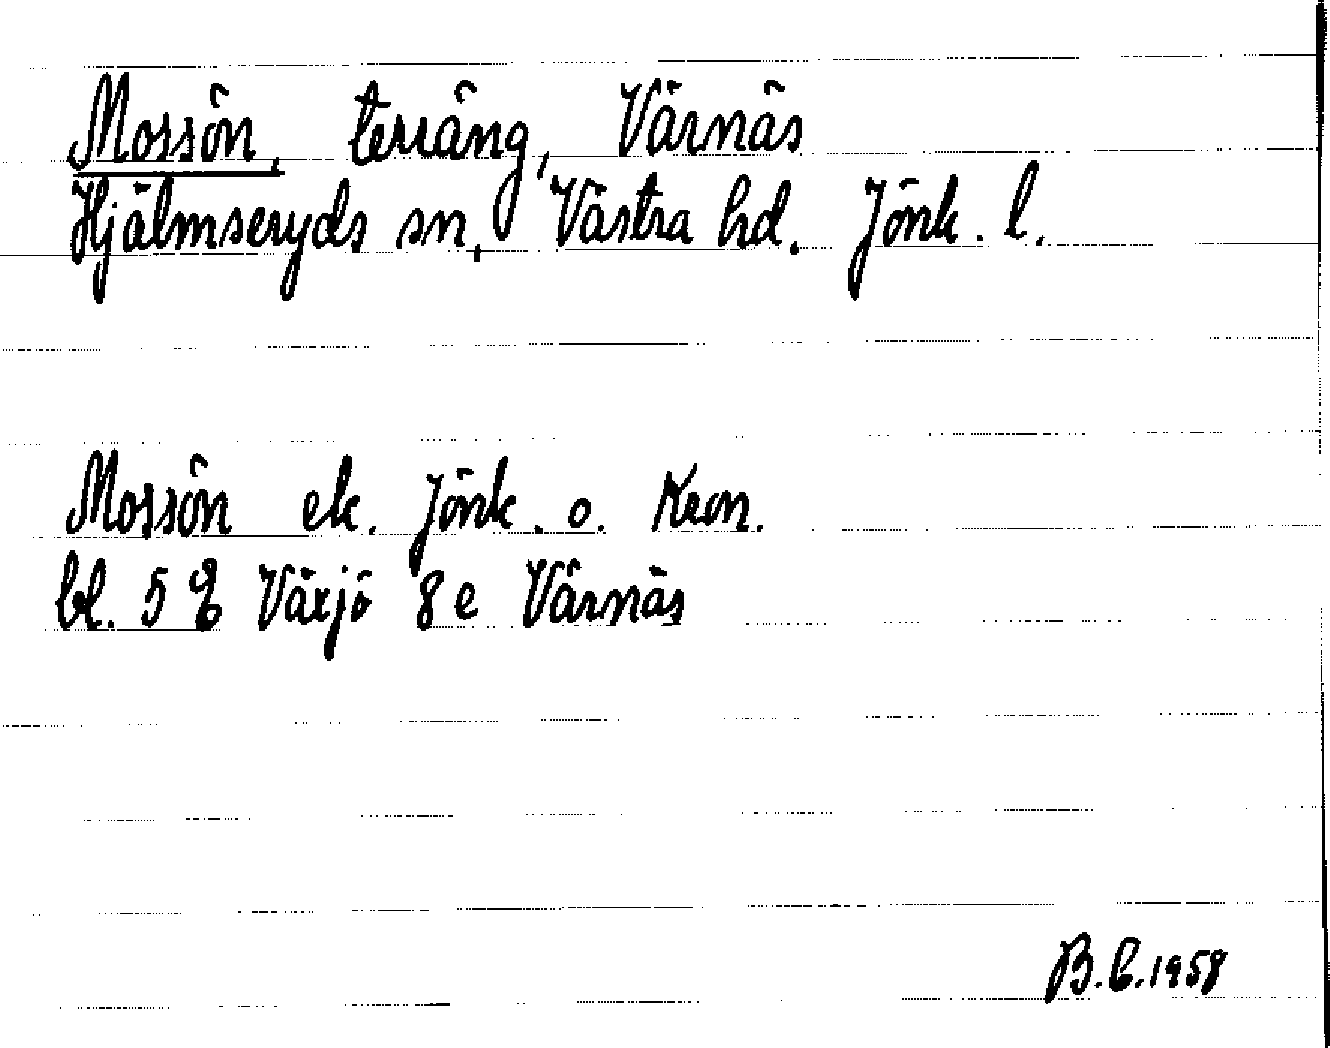 Mossön, terräng, Värnäs
Hjälmseryds sn, Västra hd. Jönk. l.
Mossön ek. Jönk. o. Kron.
bl. 5 E Växjö 8 e Värnäs
B.C.1958